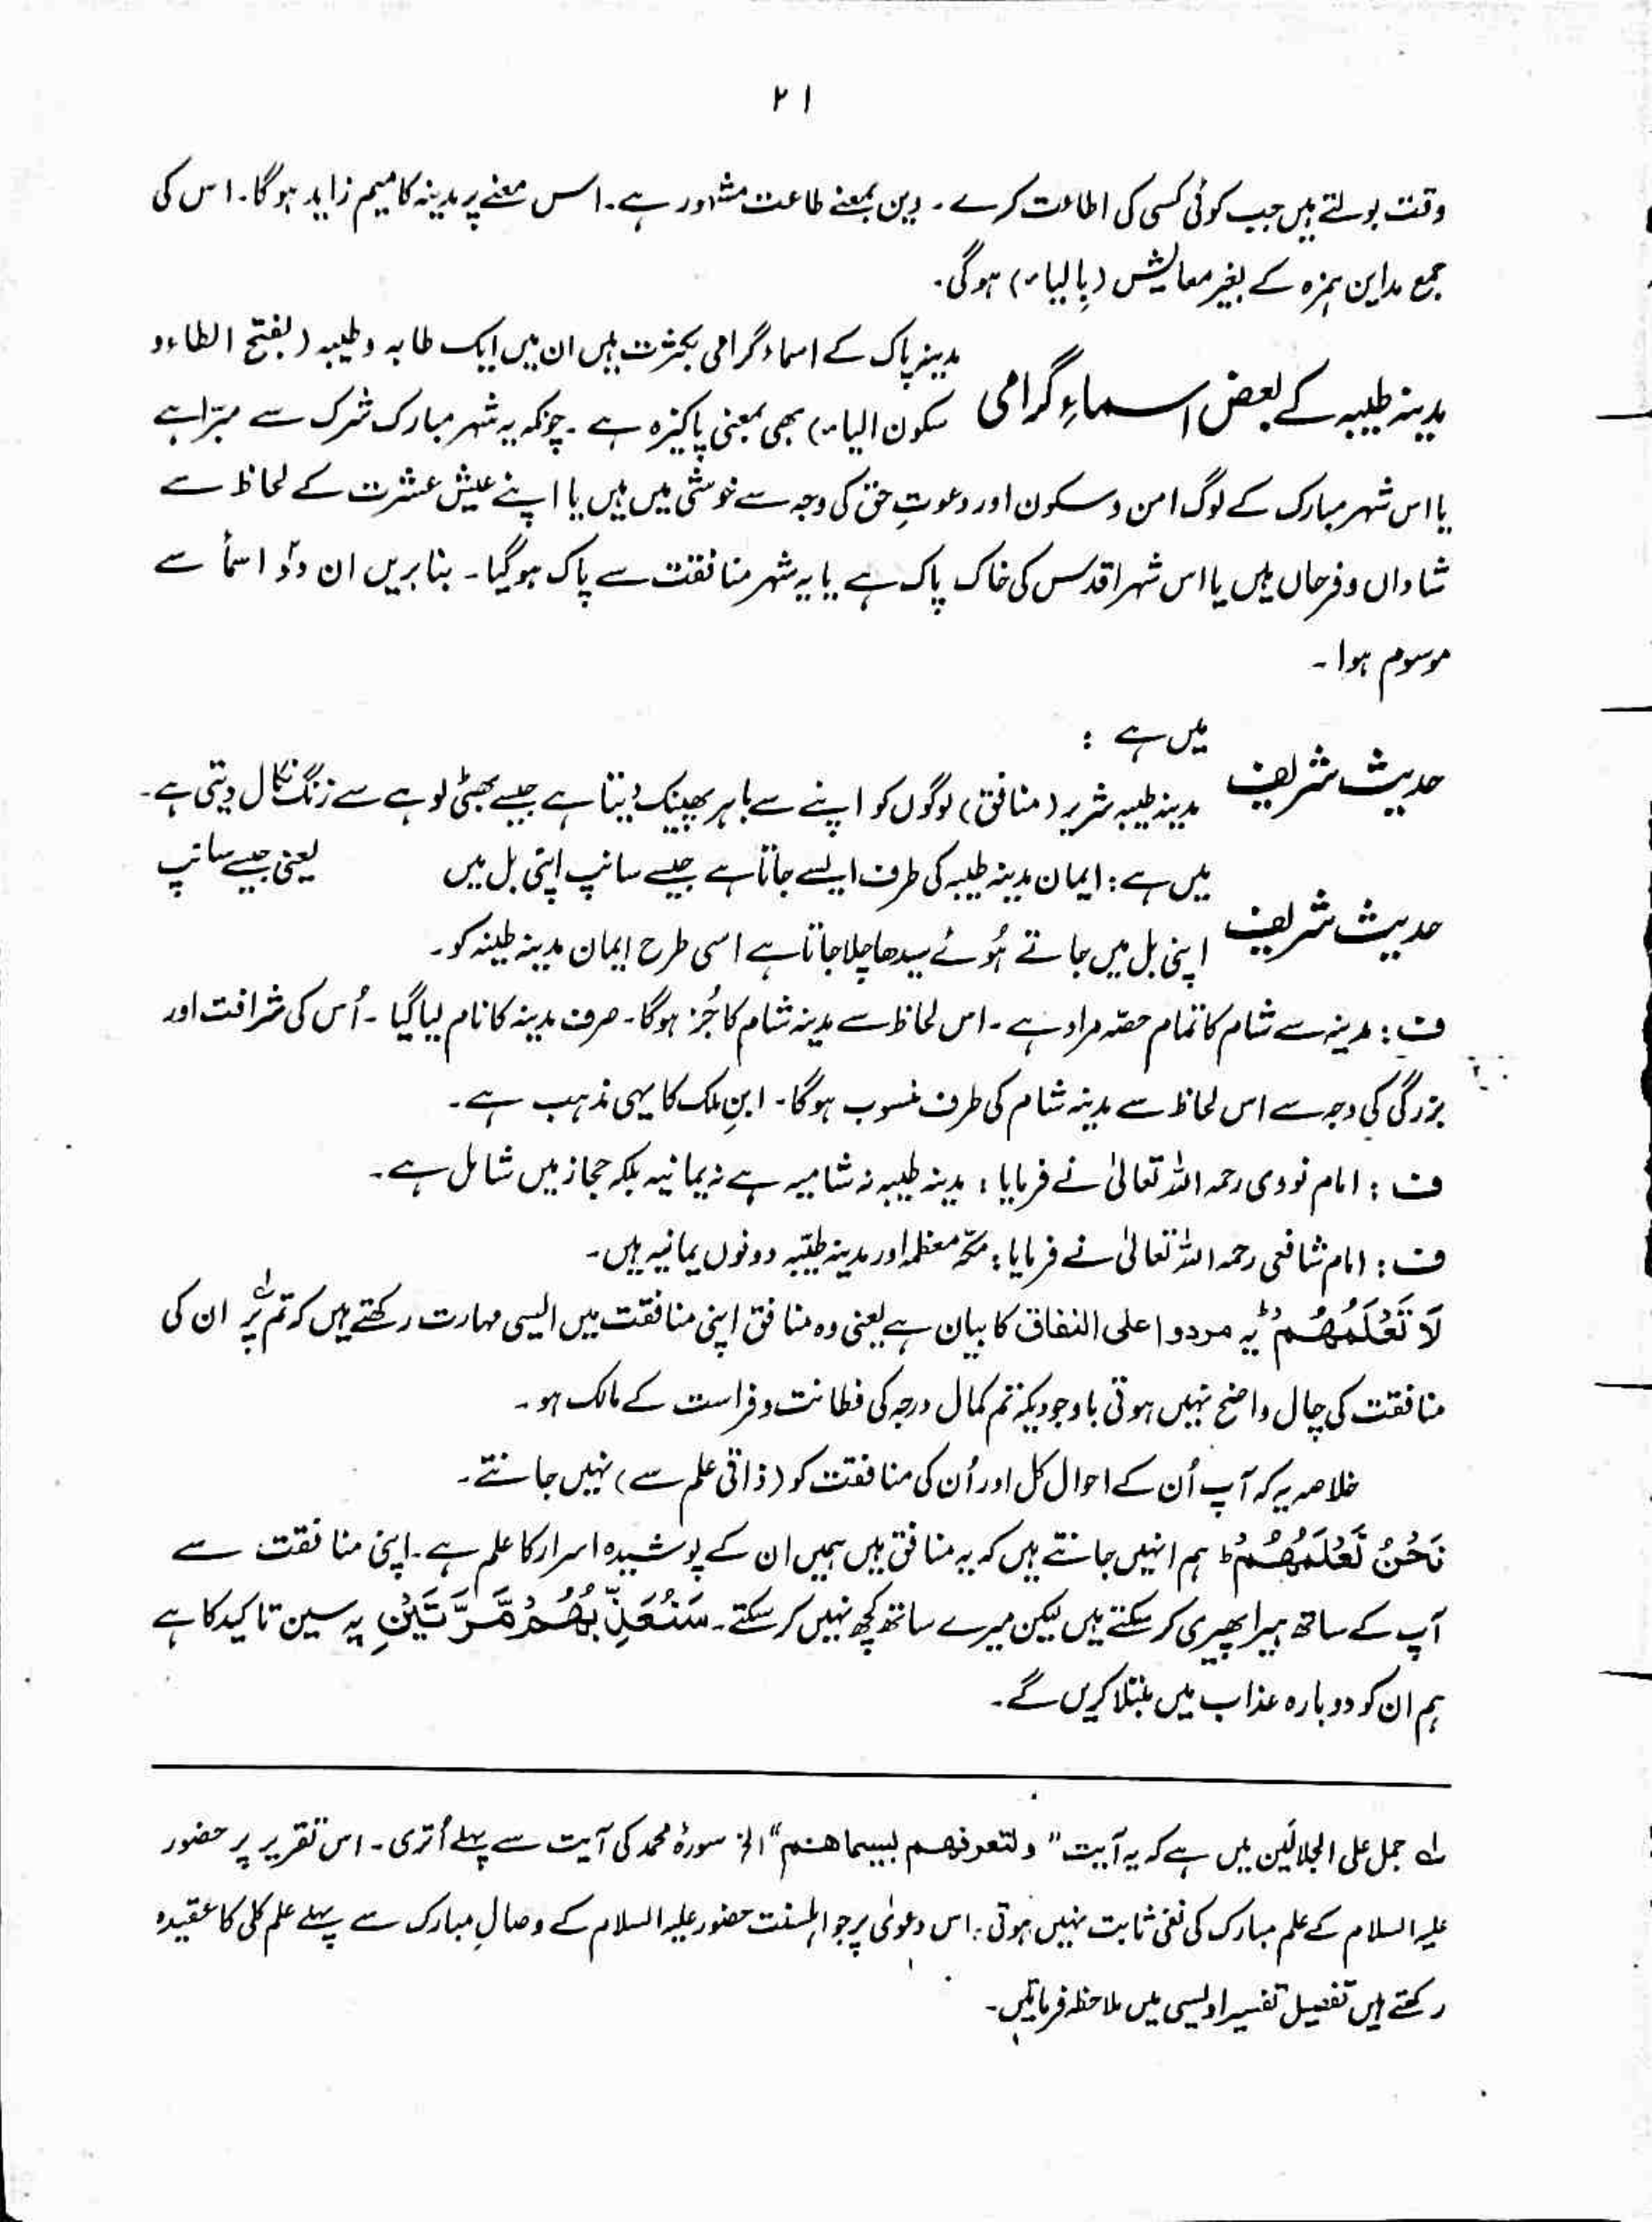 ۲۱
وقت بولتے ہیں جب کوئی کسی کی اطاعت کرے۔ دین بمعنے طاعت مشہور ہے۔ اس معنے پر مدینہ کا میم زاید ہوگا۔ اس کی
جمع مداین ہمزہ کے بغیر معایش (بالیاء) ہوگی۔
مدینہ طیبہ کے بعض اسماءِ گرامی
مدینہ پاک کے اسماء گرامی بکثرت ہیں ان میں ایک طابہ و طیبہ (بفتح الطاء و
سکون الیاء) بھی بمعنی پاکیزہ ہے۔ چونکہ یہ شہر مبارک شرک سے مبرّا ہے
یا اس شہر مبارک کے لوگ امن و سکون اور دعوتِ حق کی وجہ سے خوشی میں ہیں یا اپنے عیش عشرت کے لحاظ سے
شاداں و فرحاں ہیں یا اس شہر اقدس کی خاک پاک ہے یا یہ شہر منافقت سے پاک ہوگیا۔ بنا بریں ان دو اسمأ سے
موسوم ہوا۔
حدیث شریف میں ہے :
مدینہ طیبہ شریر (منافق) لوگوں کو اپنے سے باہر پھینک دیتا ہے جیسے بھٹی لوہے سے زنگ نکال دیتی ہے۔
حدیث شریف میں ہے: ایمان مدینہ طیبہ کی طرف ایسے جاتا ہے جیسے سانپ اپنی بل میں یعنی جیسے سانپ
اپنی بل میں جاتے ہُوئے سیدھا چلا جاتا ہے اسی طرح ایمان مدینہ طیبہ کو۔
ف : مدینہ سے شام کا تمام حصّہ مراد ہے۔ اس لحاظ سے مدینہ شام کا جُز ہوگا۔ صرف مدینہ کا نام لیا گیا۔ اُس کی شرافت اور
بزرگی کی وجہ سے اس لحاظ سے مدینہ شام کی طرف منسوب ہوگا۔ ابنِ ملک کا یہی مذہب ہے۔
ف : امام نووی رحمہ اللہ تعالیٰ نے فرمایا : مدینہ طیبہ نہ شامیہ ہے نہ یمانیہ بلکہ حجاز میں شامل ہے۔
ف : امام شافعی رحمہ اللہ تعالیٰ نے فرمایا : مکہّ معظمہ اور مدینہ طیّبہ دونوں یمانیہ ہیں۔
لَا تَعْلَمُهُمْ ؕ یہ مردوا على النفاق کا بیان ہے یعنی وہ منافق اپنی منافقت میں ایسی مہارت رکھتے ہیں کہ تم پر ان کی
منافقت کی چال واضح نہیں ہوتی باوجودیکہ تم کمال درجہ کی فطانت و فراست کے مالک ہو۔
خلاصہ یہ کہ آپ اُن کے احوال کل اور اُن کی منافقت کو (ذاتی علم سے) نہیں جانتے۔
نَحْنُ نَعْلَمُهُمْ ؕ ہم انہیں جانتے ہیں کہ یہ منافق ہیں ہمیں ان کے پوشیدہ اسرار کا علم ہے۔ اپنی منافقت سے
آپ کے ساتھ ہیرا پھیری کر سکتے ہیں لیکن میرے ساتھ کچھ نہیں کر سکتے۔ سَنُعَذِّبُهُمْ مَّرَّتَيْنِ یہ سین تاکید کا ہے
ہم ان کو دوبارہ عذاب میں مبتلا کریں گے۔
لہ جمل علی الجلالَین میں ہے کہ یہ آیت "ولتعرفهم بسيماهم" الخ سورۂ محمد کی آیت سے پہلے اُتری۔ اس تقریر پر حضور
علیہ السلام کے علم مبارک کی نفی ثابت نہیں ہوتی۔ اس دعوٰی پر جو اہلسنت حضور علیہ السلام کے وصالِ مبارک سے پہلے علم کلی کا عقیدہ
رکھتے ہیں تفصیل تفسیر اویسی میں ملاحظہ فرمائیں۔